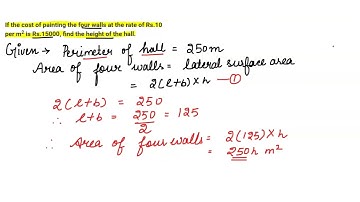 If the cost of painting the four walls at the rate of Rs.10
per m² is Rs.15000, find the height of the hall.
Given → Perimeter of hall = 250m
Area of four walls = lateral surface area
= 2(l+b)×h —①
2(l+b) = 250
∴ l+b = 250/2 = 125
∴ Area of four walls = 2(125)×h
= 250h m²